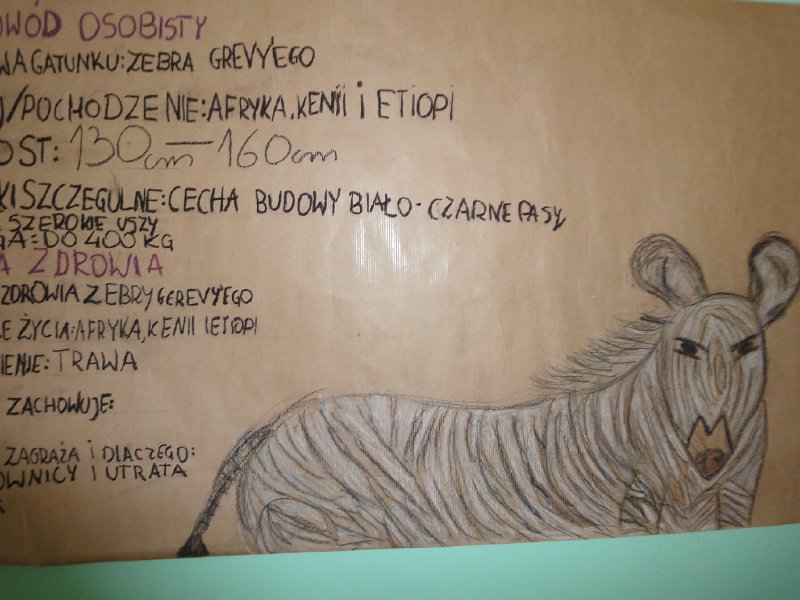 WÓD OSOBISTY
WA GATUNKU: ZEBRA GREVY'EGO
/POCHODZENIE: AFRYKA, KENII I ETIOPI
OST: 130cm - 160cm
KI SZCZEGÓLNE: CECHA BUDOWY BIAŁO-CZARNE PASY,
SZEROKIE USZY
GA: DO 400 KG
A ZDROWIA
ZDROWIA ZEBRY GEREVY'EGO
E ŻYCIA: AFRYKA, KENII I ETIOPI
IENIE: TRAWA
ZACHOWUJE:
ZAGRAŻA I DLACZEGO:
OWNICY I UTRATA